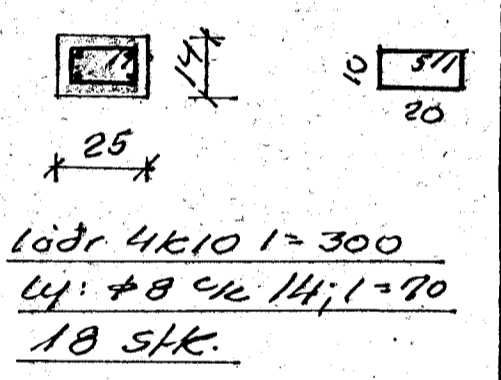 14
10
20
25
lóðr 4K10 l=300
ly: ø8 c/c 14; l=70
18 stk.